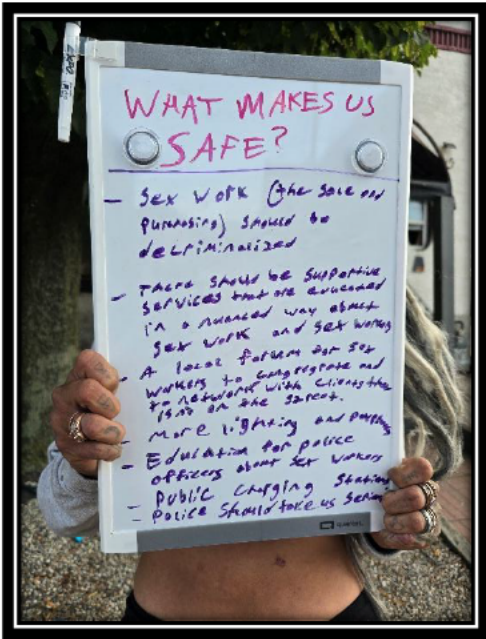 EXPO
WHAT MAKES US
SAFE?
- Sex work (the sale and
purchasing) should be
decriminalized
- There should be supportive
services that are educated
in a nuanced way about
sex work and sex workers
- A local forum for sex
workers to congregate and
to network with clients that
isn't on the street.
- More lighting and
- Education for police
officers about sex workers
- Public Charging Stations
- Police should take us serious